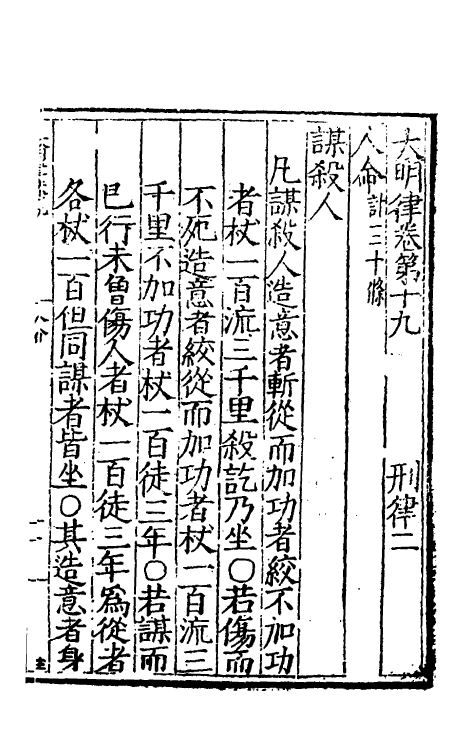 大明律卷第十九　刑律二
人命計二十條
謀殺人
凡謀殺人造意者斬從而加功者絞不加功
者杖一百流三千里殺訖乃坐○若傷而
不死造意者絞從而加功者杖一百流三
千里不加功者杖一百徒三年○若謀而
已行未曾傷人者杖一百徒三年爲從者
各杖一百但同謀者皆坐○其造意者身